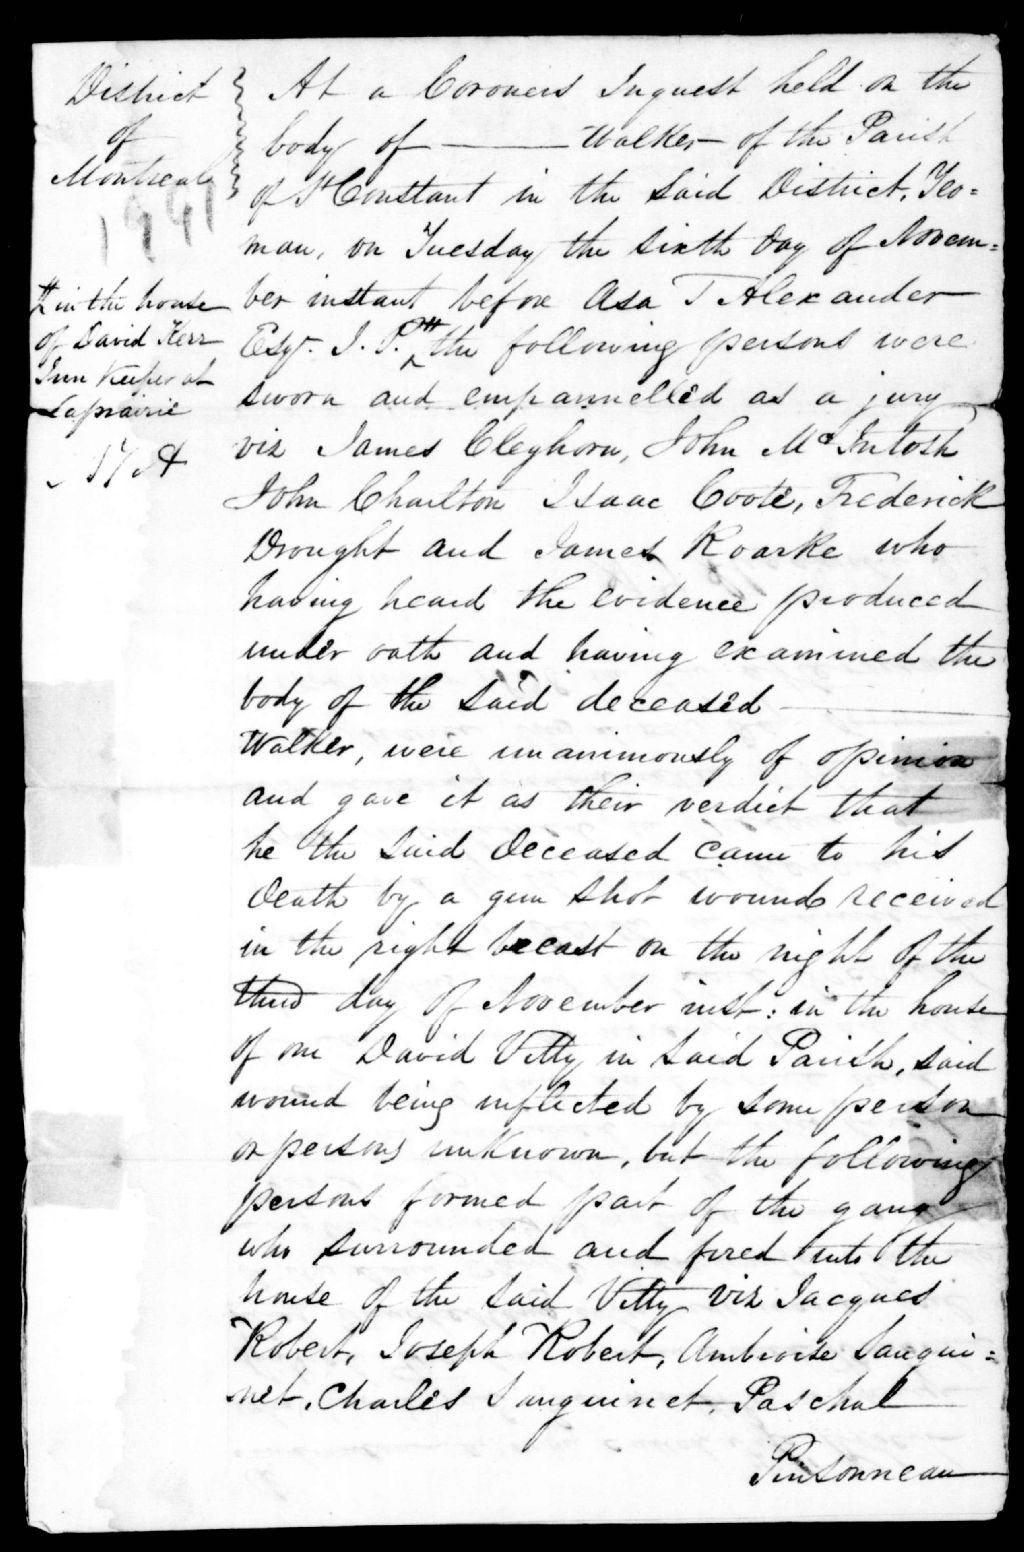 District
of
Montreal
1941
# in the house
of David Kerr
Inn Keeper at
Laprairie
At a Coroners Inquest held on the
body of ——— Walker of the Parish
of St Constant in the said District, Yeo=
man, on Tuesday the sixth day of Novem=
ber instant before Asa T Alexander
Esqr. J. P. # the following persons were
sworn and empannelled as a jury
viz James Cleghorn, John McIntosh
John Charlton Isaac Coote, Frederick
Drought and James Roarke who
having heard the evidence produced
under oath and having examined the
body of the said deceased ———
Walker, were unanimously of opinion
and gave it as their verdict that
he the said deceased came to his
death by a gun shot wound received
in the right breast on the night of the
third day of November inst: in the house
of one David Vitty in said Parish, said
wound being inflicted by some person
or persons unknown, but the following
persons formed part of the gang
who surrounded and fired into the
house of the said Vitty viz Jacques
Robert, Joseph Robert, Ambroise Sangui=
net, Charles Sanguinet, Paschal
Pinsonneau